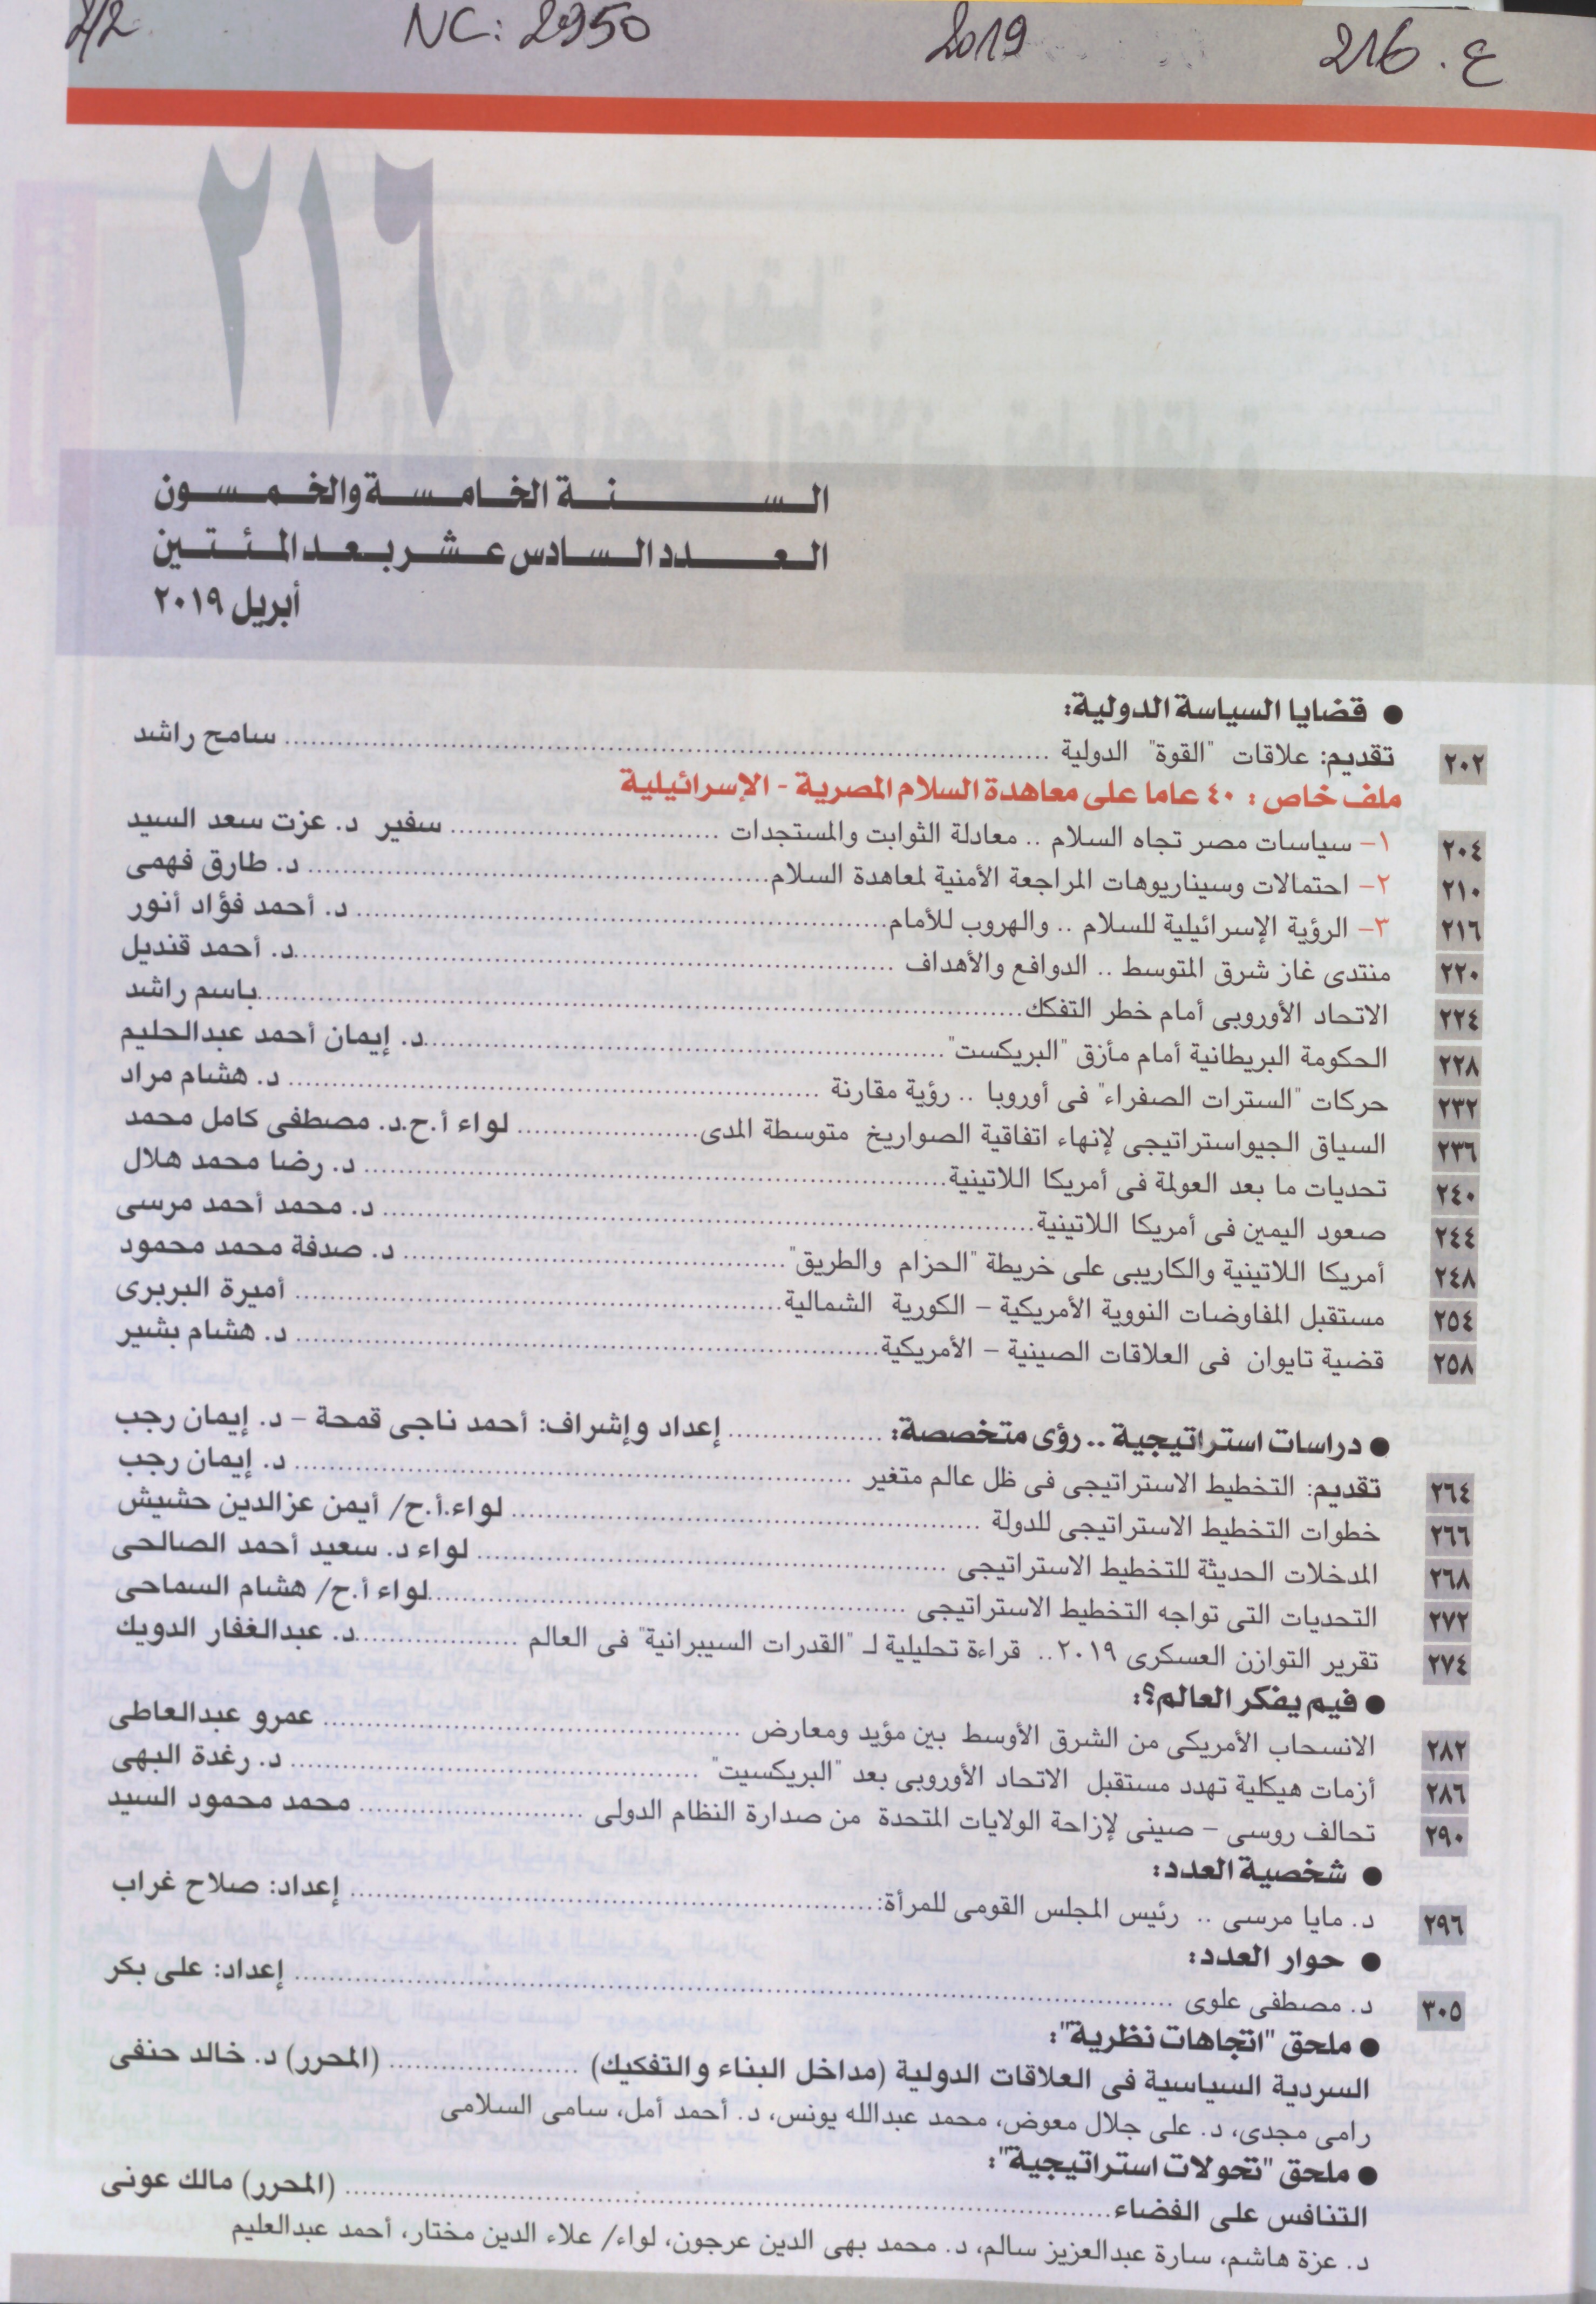 2/2 NC: 2950 2019 216 . ع
٢١٦
السنة الخامسة والخمسون
العدد السادس عشر بعد المئتين
أبريل ٢٠١٩
● قضايا السياسة الدولية:
٢٠٢ تقديم: علاقات "القوة" الدولية ........ سامح راشد
ملف خاص : ٤٠ عاما على معاهدة السلام المصرية - الإسرائيلية
٢٠٤ ١- سياسات مصر تجاه السلام .. معادلة الثوابت والمستجدات ........ سفير د. عزت سعد السيد
٢١٠ ٢- احتمالات وسيناريوهات المراجعة الأمنية لمعاهدة السلام ........ د. طارق فهمى
٢١٦ ٣- الرؤية الإسرائيلية للسلام .. والهروب للأمام ........ د. أحمد فؤاد أنور
٢٢٠ منتدى غاز شرق المتوسط .. الدوافع والأهداف ........ د. أحمد قنديل
٢٢٤ الاتحاد الأوروبى أمام خطر التفكك ........ باسم راشد
٢٢٨ الحكومة البريطانية أمام مأزق "البريكست" ........ د. إيمان أحمد عبدالحليم
٢٣٢ حركات "السترات الصفراء" فى أوروبا .. رؤية مقارنة ........ د. هشام مراد
٢٣٦ السياق الجيواستراتيجى لإنهاء اتفاقية الصواريخ متوسطة المدى ........ لواء أ.ح.د. مصطفى كامل محمد
٢٤٠ تحديات ما بعد العولمة فى أمريكا اللاتينية ........ د. رضا محمد هلال
٢٤٤ صعود اليمين فى أمريكا اللاتينية ........ د. محمد أحمد مرسى
٢٤٨ أمريكا اللاتينية والكاريبى على خريطة "الحزام والطريق" ........ د. صدفة محمد محمود
٢٥٤ مستقبل المفاوضات النووية الأمريكية – الكورية الشمالية ........ أميرة البربرى
٢٥٨ قضية تايوان فى العلاقات الصينية – الأمريكية ........ د. هشام بشير
● دراسات استراتيجية .. رؤى متخصصة: ........ إعداد وإشراف: أحمد ناجى قمحة – د. إيمان رجب
٢٦٤ تقديم: التخطيط الاستراتيجى فى ظل عالم متغير ........ د. إيمان رجب
٢٦٦ خطوات التخطيط الاستراتيجى للدولة ........ لواء.أ.ح/ أيمن عزالدين حشيش
٢٦٨ المدخلات الحديثة للتخطيط الاستراتيجى ........ لواء د. سعيد أحمد الصالحى
٢٧٢ التحديات التى تواجه التخطيط الاستراتيجى ........ لواء أ.ح/ هشام السماحى
٢٧٤ تقرير التوازن العسكرى ٢٠١٩.. قراءة تحليلية لـ "القدرات السيبرانية" فى العالم ........ د. عبدالغفار الدويك
● فيم يفكر العالم؟:
٢٨٢ الانسحاب الأمريكى من الشرق الأوسط بين مؤيد ومعارض ........ عمرو عبدالعاطى
٢٨٦ أزمات هيكلية تهدد مستقبل الاتحاد الأوروبى بعد "البريكسيت" ........ د. رغدة البهى
٢٩٠ تحالف روسى – صينى لإزاحة الولايات المتحدة من صدارة النظام الدولى ........ محمد محمود السيد
● شخصية العدد:
٢٩٦ د. مايا مرسى .. رئيس المجلس القومى للمرأة: ........ إعداد: صلاح غراب
● حوار العدد:
٣٠٥ د. مصطفى علوى ........ إعداد: على بكر
● ملحق "اتجاهات نظرية":
السردية السياسية فى العلاقات الدولية (مداخل البناء والتفكيك) ........ (المحرر) د. خالد حنفى
رامى مجدى، د. على جلال معوض، محمد عبدالله يونس، د. أحمد أمل، سامى السلامى
● ملحق "تحولات استراتيجية":
التنافس على الفضاء ........ (المحرر) مالك عونى
د. عزة هاشم، سارة عبدالعزيز سالم، د. محمد بهى الدين عرجون، لواء/ علاء الدين مختار، أحمد عبدالعليم